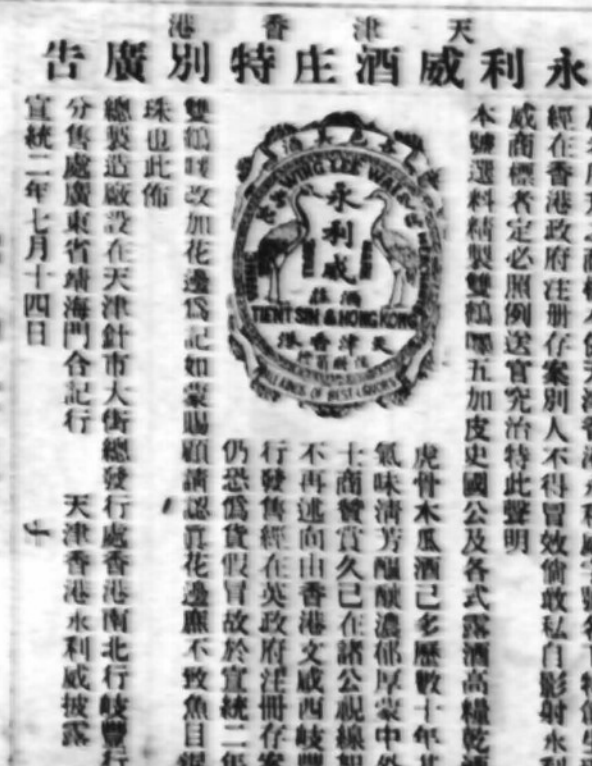 天津香港
永利威酒庄特別廣告
經在香港政府注册存案別人不得冒效倘敢私自影射永利
威商標者定必照例送官究治特此聲明
本號選料精製雙鶴嘜五加皮史國公及各式露酒高糧乾
WING LEE WAI
永利威
酒庄
TIENTSIN & HONGKONG
天津香港
虎骨木瓜酒已多歷數十年其
氣味清芳醞釀濃郁厚蒙中外
士商贊賞久已在諸公視線如
不再述向由香港文咸西岐豐
行發售經在英政府注冊存案
仍恐僞貨假冒故於宣統二年
雙鶴嘜改加花邊爲記如蒙賜顧請認眞花邊庶不致魚目混
珠也此佈
總製造廠設在天津針市大街總發行處香港南北行岐豐行
分售處廣東省靖海門合記行 天津香港永利威披露
宣統二年七月十四日